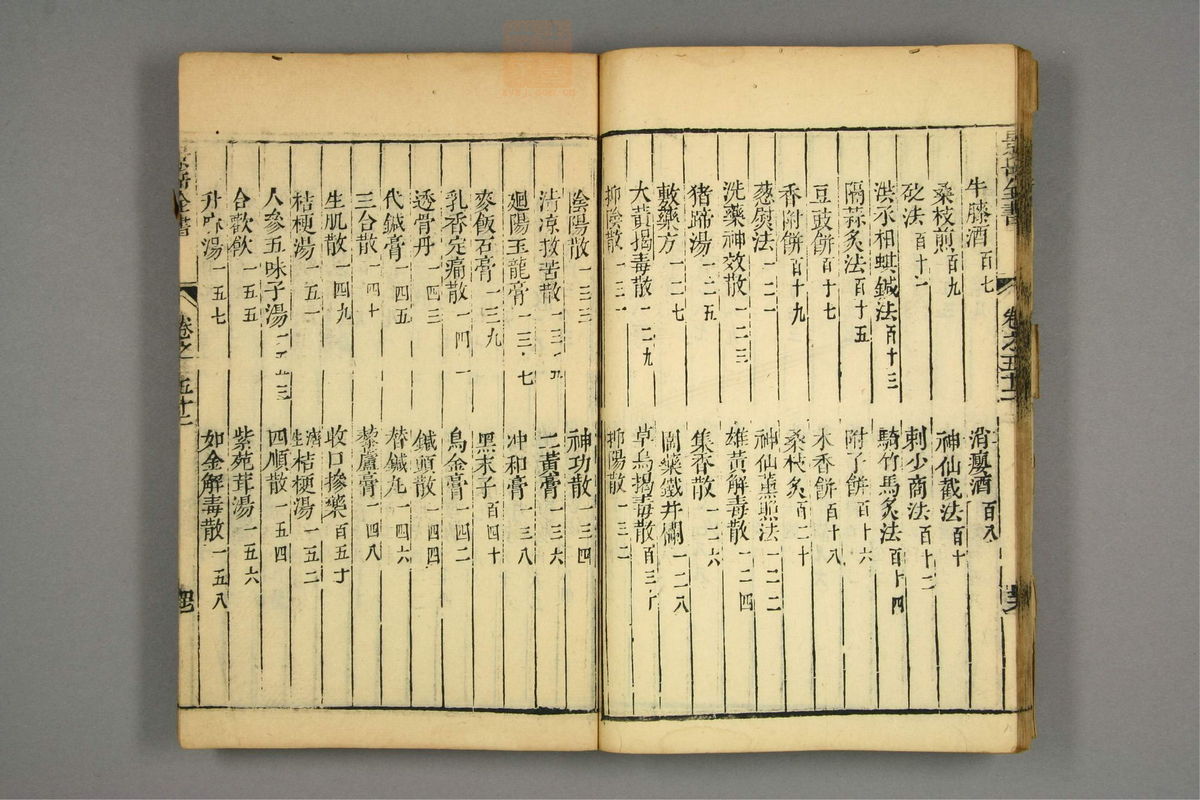 牛膝酒百七
消癭酒百八
桑枝煎百九
神仙截法百十
砭法百十一
刺少商法百十二
洪氏相蟻鍼法百十三
騎竹馬炙法百十四
隔蒜炙法百十五
附子餅百十六
豆豉餅百十七
木香餅百十八
香附餅百十九
桑枝炙百二十
葱熨法一二一
神仙薰照法一二二
洗藥神效散一二三
雄黃解毒散一二四
猪蹄湯一二五
集香散一二六
敷藥方一二七
圍藥鐵井闌一二八
大黃揭毒散一二九
草烏揭毒散百三十
抑陰散一三一
抑陽散一三二
陰陽散一三三
神功散一三四
清涼救苦散一三五
二黃膏一三六
廻陽玉龍膏一三七
冲和膏一三八
麥飯石膏一三九
黑末子百四十
乳香定痛散一四一
烏金膏一四二
透骨丹一四三
鍼頭散一四四
代鍼膏一四五
替鍼丸一四六
三台散一四十
藜蘆膏一四八
生肌散一四九
收口摻藥百五十
桔梗湯一五一
濟生桔梗湯一五二
人參五味子湯一五三
四順散一五四
合歡飲一五五
紫苑茸湯一五六
升麻湯一五七
如金解毒散一五八
景岳全書
卷之五十二
景岳全書
卷之五十二